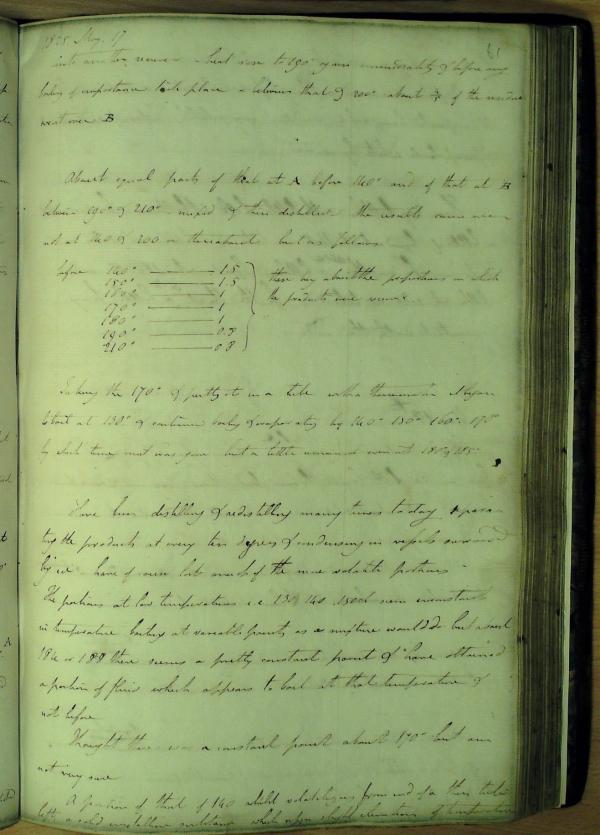 1825 May. 17
61
into another receiver - heat rose to 190° again immediately & before any
boiling of importance took place - between that & 200° about of the residue
went over B
Almost equal parts of that at A before 140° and of that at B
between 190° & 210° mixed & then distilled the results came over
not at 140 & 200 or thereabouts but as follows
before 140° 1.5
150° 1.5
160° 1
170° 1
180° 1
190° 0.8
210° 0.8
these are about the proportions in which
the products were received
Taking the 170° & putting it in a tube with a thermometer it began
to boil at 130° & continued boiling & evaporating by 140° 150° 160° 170°
by which time most was gone but a little remained even at 180 & 185°
Have been distilling & redistilling many times to day separa-
ting the products at every ten degrees & condensing in vessels surrounded
by ice - have of course lost much of the more volatile portions -
The portions at low temperatures i.e. 130 140 150 &c seem inconstant
in temperature boiling at variable points as a mixture would do but about
186 or 188 there seems a pretty constant point & have obtained
a portion of fluid which appears to boil at that temperature &
not before
Thought there was a constant point about 170° but am
not very sure
A portion of that of 140 whilst volatilizing from end of a thin tube
left a solid crystalline substance which upon slight elevation of temperature